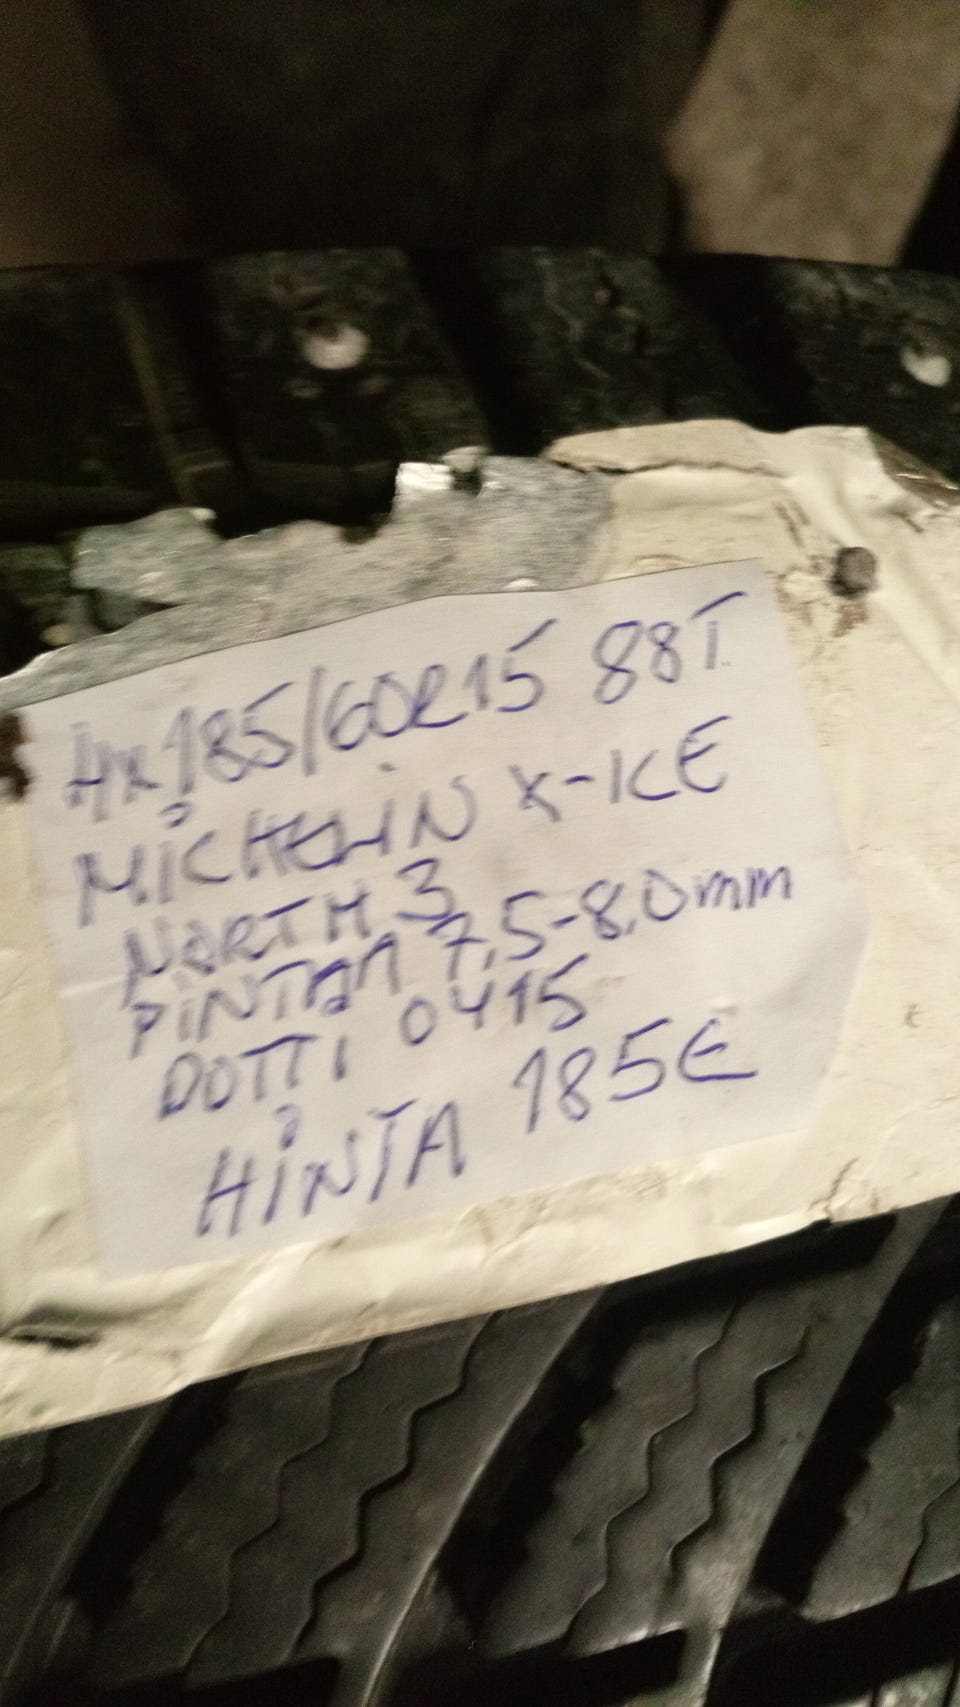 4x185/60R15 88T
MICHELIN X-ICE
NORTH 3
PINTAA 7,5-8,0mm
DOTTI 0415
HINTA 185€